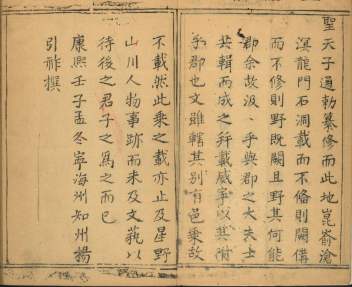 聖天子通勅纂修而此地崑崙滄
溟龍門石洞載而不修則闕備
而不修則野既闕且野其何能
郡余故汲乎與郡之大夫士
共輯而成之幷載咸事以其附
乎郡也文雖轄其別有邑乘故
不載然此乘之載亦止及星野
山川人物事跡而未及文藝以
待後之君子之為之而已
康熙壬子孟冬寧海州知州楊
引祚撰